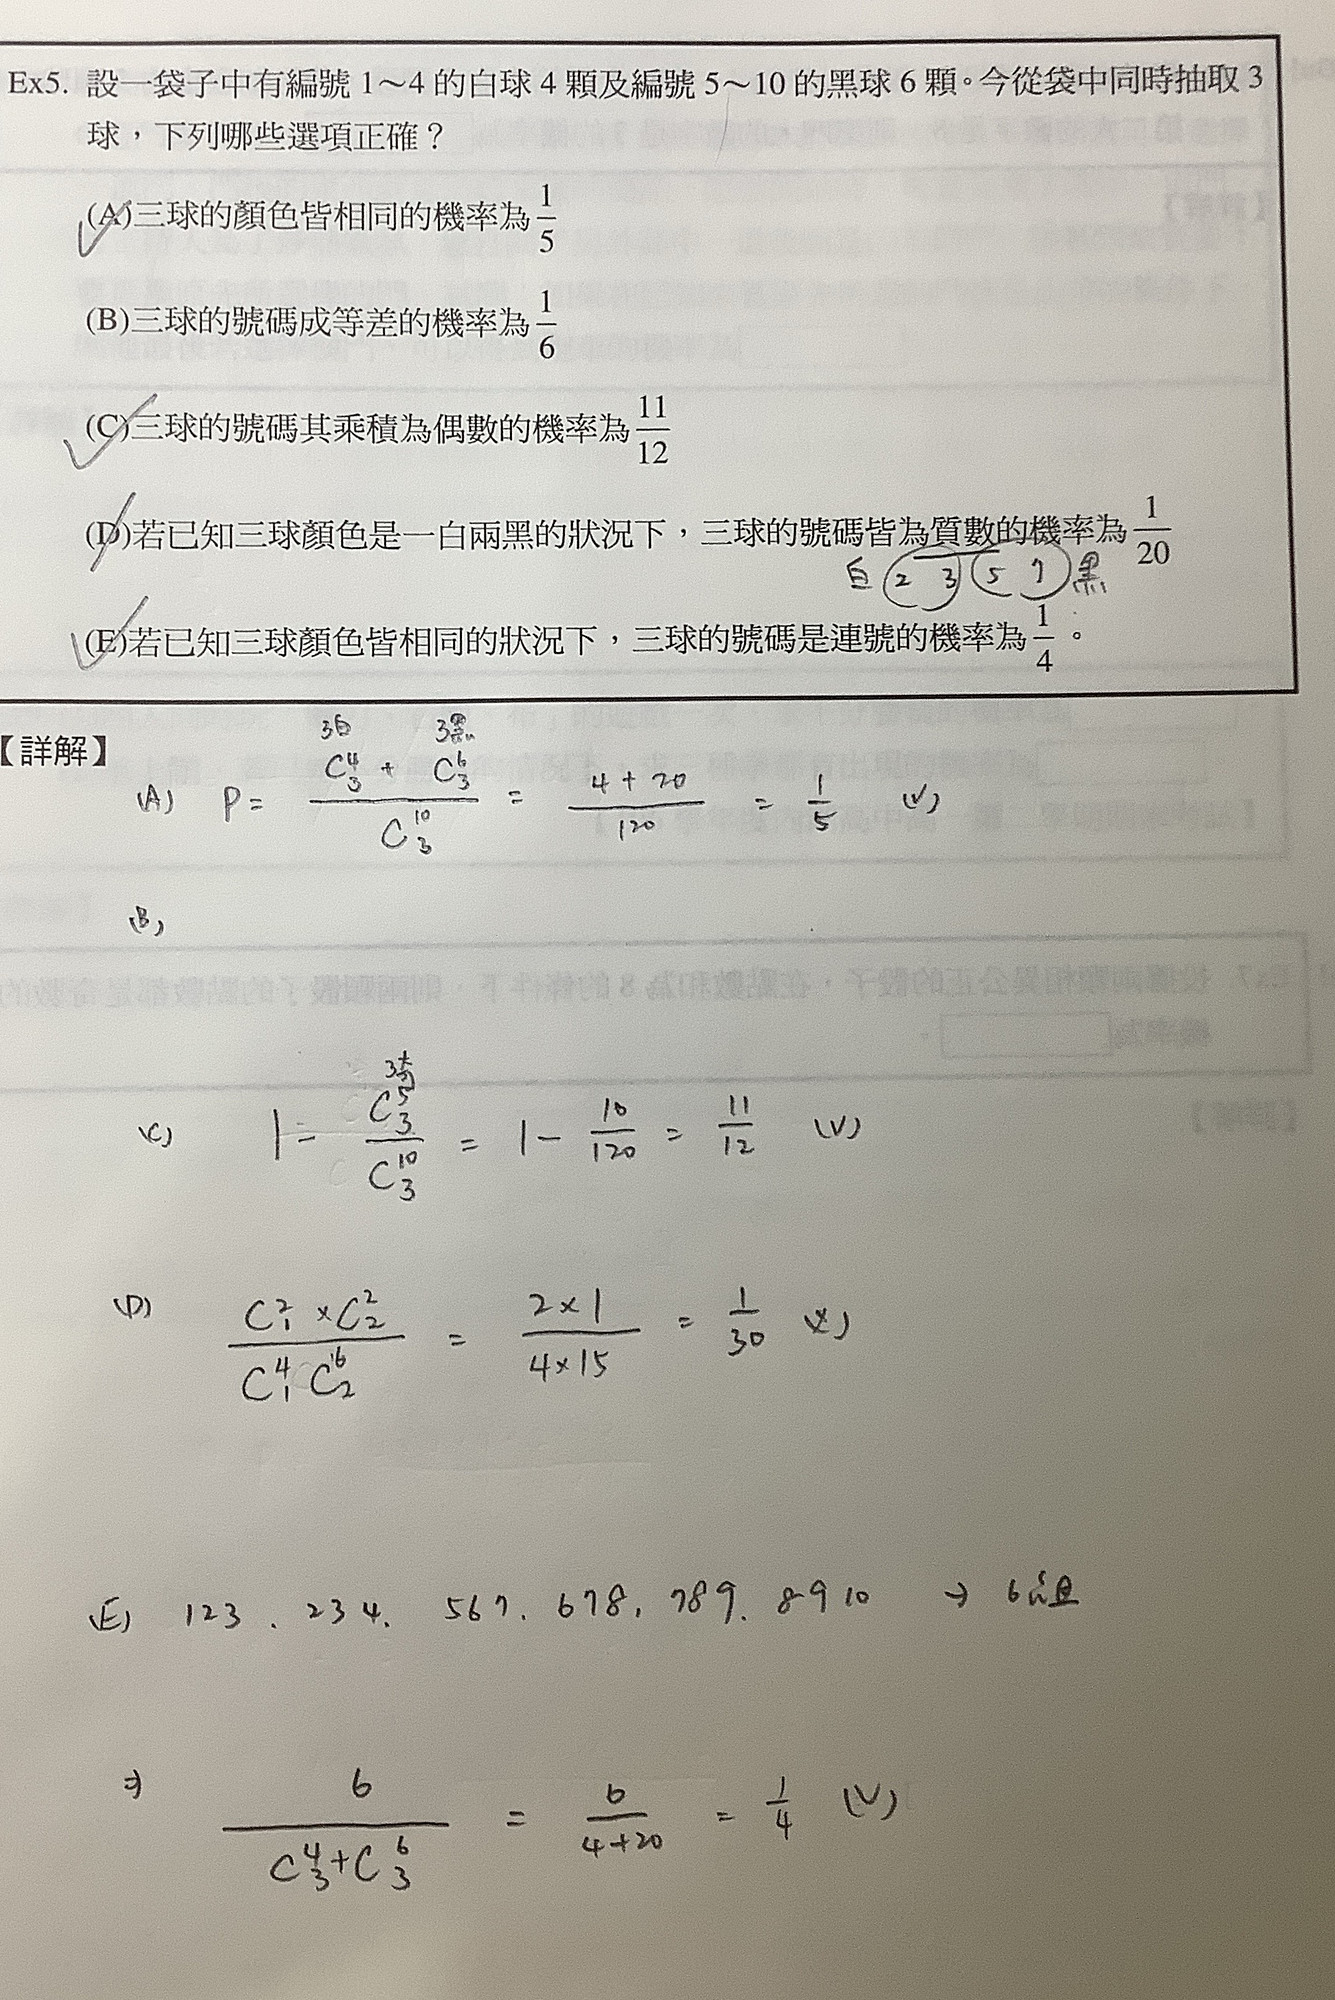 Ex5. 設一袋子中有編號 1～4 的白球 4 顆及編號 5～10 的黑球 6 顆。今從袋中同時抽取 3
球，下列哪些選項正確？
(A)三球的顏色皆相同的機率為 1/5
(B)三球的號碼成等差的機率為 1/6
(C)三球的號碼其乘積為偶數的機率為 11/12
(D)若已知三球顏色是一白兩黑的狀況下，三球的號碼皆為質數的機率為 1/20
白 2 3 5 7 黑
(E)若已知三球顏色皆相同的狀況下，三球的號碼是連號的機率為 1/4。
【詳解】
3白 3黑
(A) P = (C⁴₃ + C⁶₃)/C¹⁰₃ = (4+20)/120 = 1/5 (V)
(B)
3奇
(C) 1 - C⁵₃/C¹⁰₃ = 1 - 10/120 = 11/12 (V)
(D) (C²₁ × C²₂)/(C⁴₁ C⁶₂) = (2×1)/(4×15) = 1/30 (X)
(E) 123、234、567、678、789、8910 → 6組
⇒ 6/(C⁴₃+C⁶₃) = 6/(4+20) = 1/4 (V)